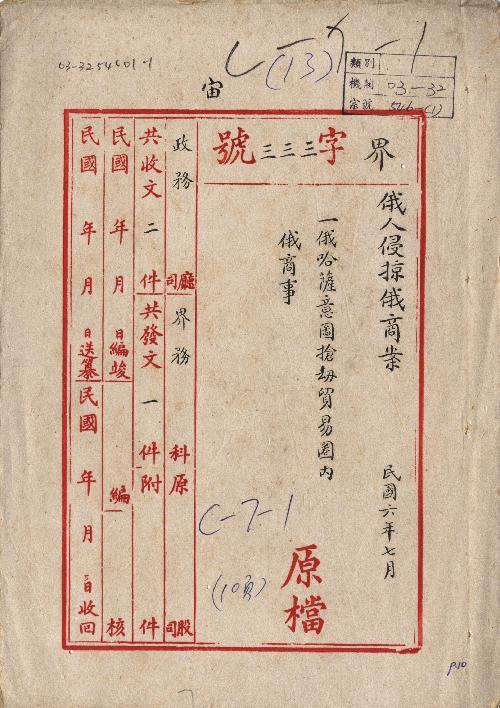 03-32 54601-1
(13)
類別
機關 03-32
宗號 546-(1)
宙
界字三三三號
俄人侵掠俄商案
民國六年七月
一俄哈薩意圖搶劫貿易圈內
俄商事
原檔
C-7-1
(10頁)
政務廳司界務科原股司
共收文二件共發文一件附件
民國年月日編竣編核
民國年月日送纂民國年月日收回
P.10